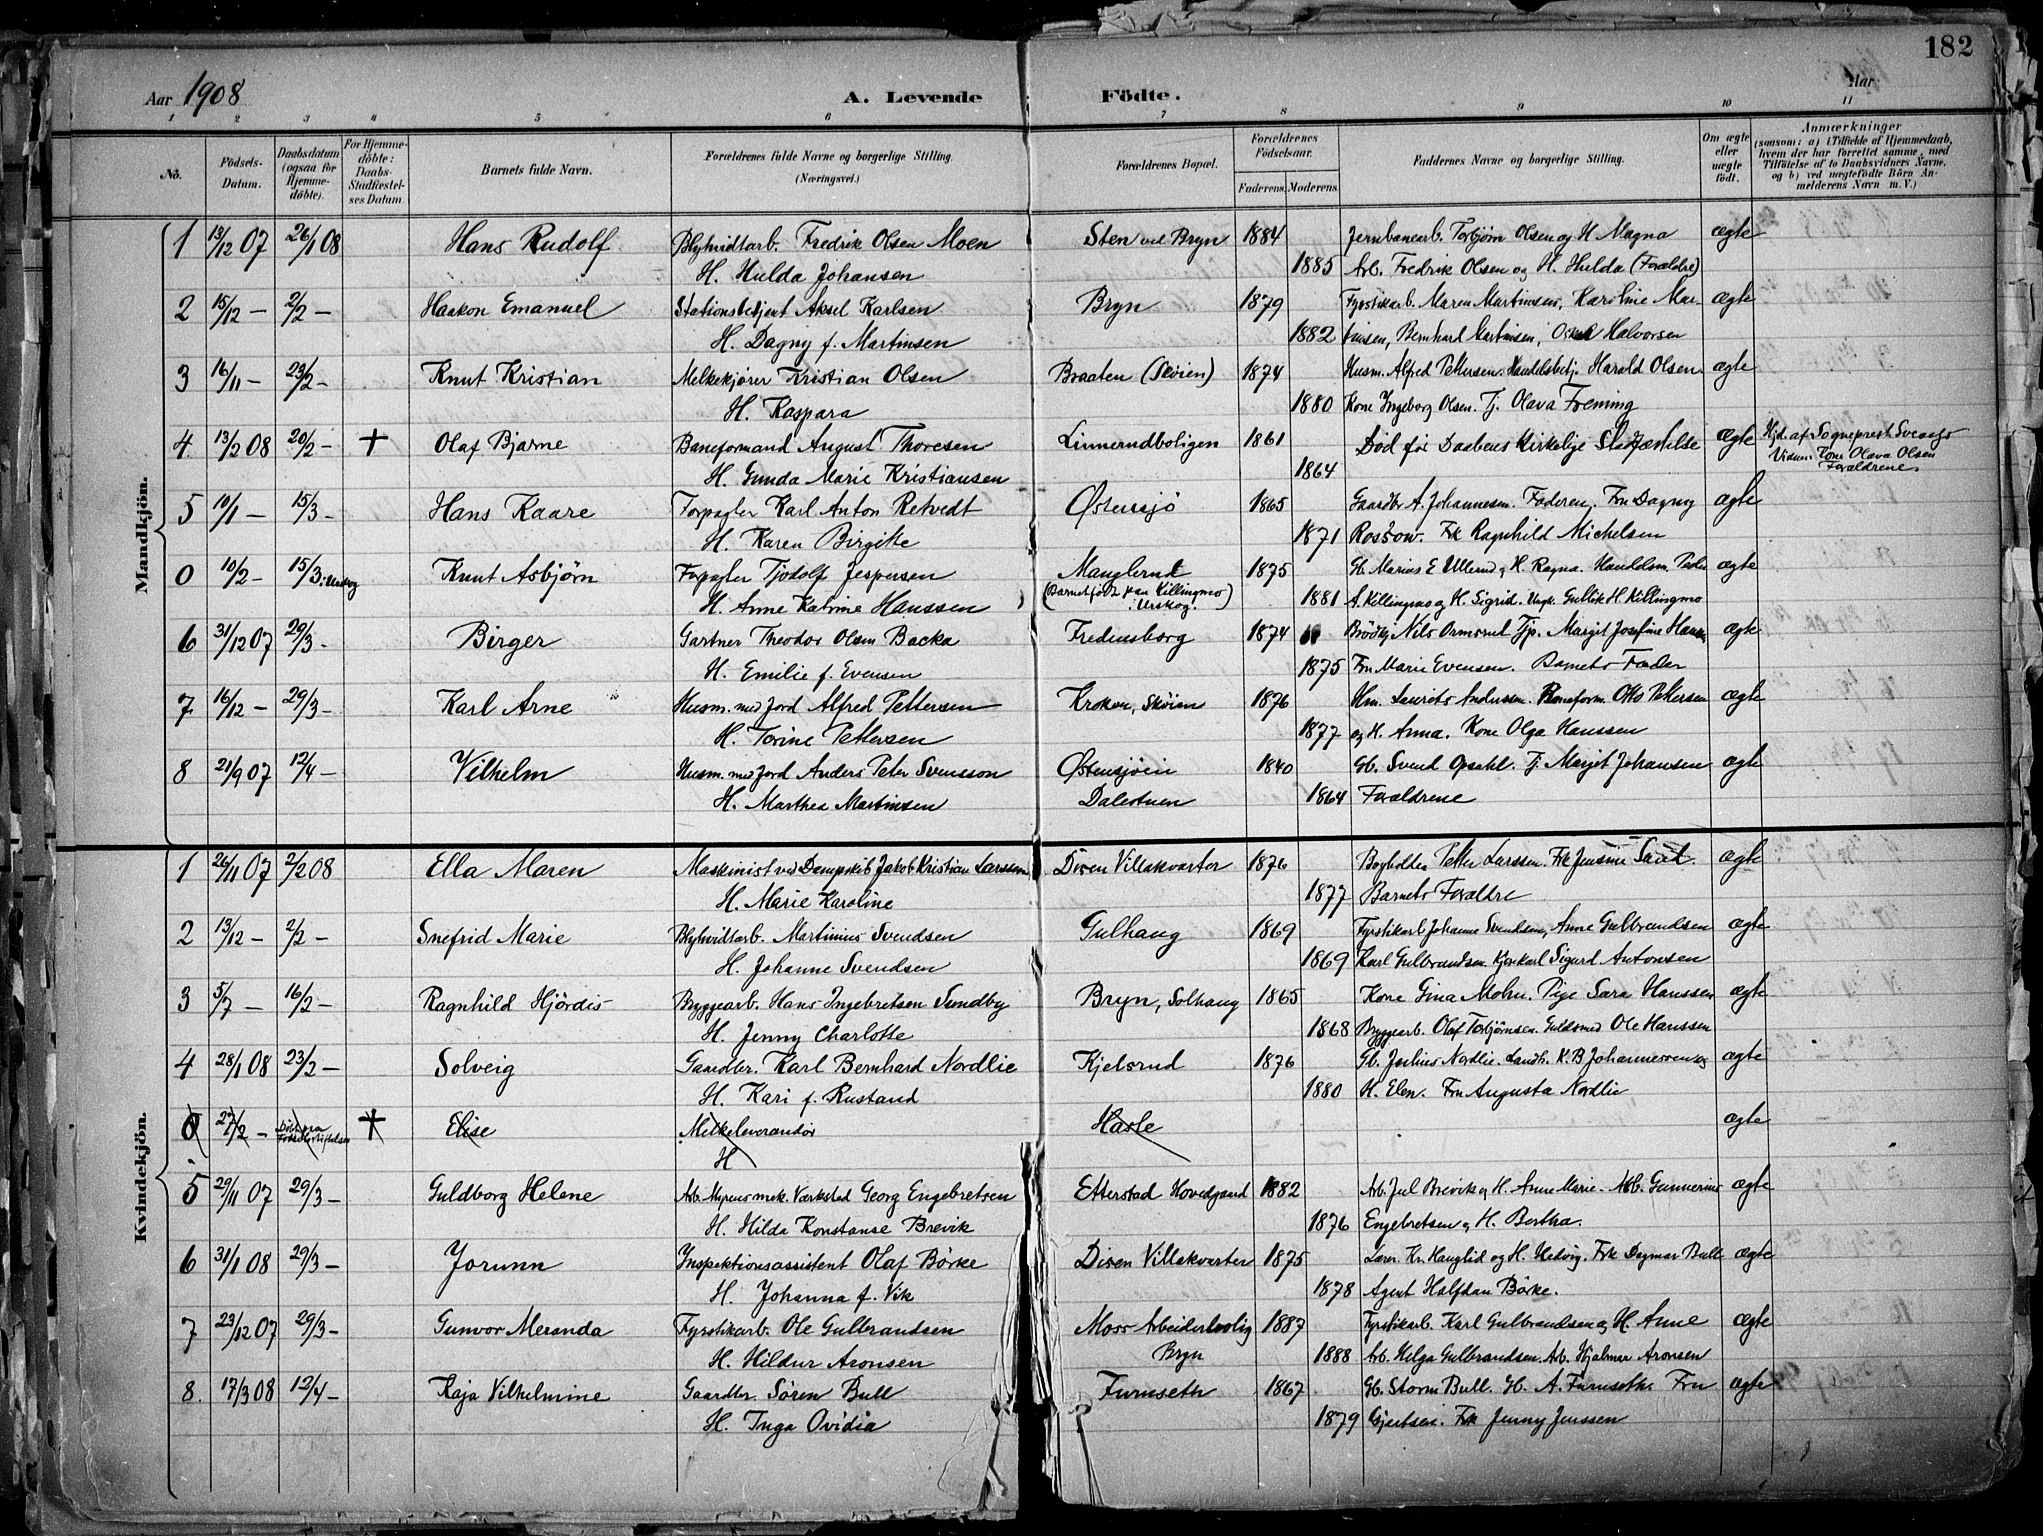 182
Aar 1908 A. Levende Födte. Aar
1 2 3 4 5 6 7 8 9 10 11
No. Födsels-Datum. Daabsdatum (ogsaa for Hjemme-döbte). For Hjemme-döbte: Daabs-Stadfæstel-ses Datum. Barnets fulde Navn. Forældrenes fulde Navne og borgerlige Stilling. (Næringsvei.) Forældrenes Bopæl. Forældrenes Födselsaar. Faderens. Moderens. Faddernes Navne og borgerlige Stilling. Om ægte eller uægte födt. Anmærkninger (saasom: a) i Tilfælde af Hjemmedaab, hvem der har forrettet samme, med Tilföielse af to Daabsvidners Navne, og b) ved uægtefödte Börn An-melderens Navn m. V.)
Mandkjön.
1 13/12 07 26/1 08 Hans Rudolf Blyhvidtarb. Fredrik Olsen Moen Sten ved Bryn 1884 Jernbanearb. Torbjørn Olsen og H. Magna ægte
H. Hulda Johansen 1885 Arb. Fredrik Olsen og H. Hulda (Forældre)
2 15/12 — 2/2 — Haakon Emanuel Stationsbetjent Aksel Karlsen Bryn 1879 Fyrstikarb. Maren Martinsen, Karoline Mar- ægte
H. Dagny f. Martinsen 1882 tinsen, Bernhard Martinsen, Halvorsen
3 16/11 — 23/2 — Knut Kristian Melkekjører Kristian Olsen Braaten (Skøien) 1874 Husm. Alfred Pettersen. Handelsbetj. Harald Olsen ægte
H. Kaspara 1880 Kone Ingeborg Olsen. Tj. Olava Freming
4 13/2 08 20/2 — + Olaf Bjarne Baneformand August Thoresen Linnerudboligen 1861 Død før Daabens kirkelige Stadfæstelse ægte Hjd. af Sogneprest Svengs
H. Gunda Marie Kristiansen 1864 Vidner. Kone Olava Olsen
Forældrene
5 10/1 — 15/3 — Hans Kaare Forpagter Karl Anton Retvedt Østensjø 1865 Gaardbr A. Johannesen. Faderen, Fru Dagny ægte
H. Karen Birgitte 1871 Rostow. Frk Ragnhild Michelsen
0 10/2 — 15/3 i Urskog Knut Asbjørn Forpagter Tjodolf Jespersen Manglerud 1875 Gb. Marius E Ullerud og H. Ragna. Handelsm. Peder ægte
H. Anne Katrine Hanssen (Barnet født paa Killingmo 1881 A. Killingmo og H. Sigrid. Ungk. Gullik H. Killingmo
i Urskog.)
6 31/12 07 29/3 — Birger Gartner Theodor Olsen Backa Fredensborg 1874 Nils Ormsrud Tjp. Margit Josefine ægte
H. Emilie f. Evensen 1875 Fru Marie Evensen. Barnets Fader
7 16/12 — 29/3 — Karl Arne Husm. med Jord Alfred Pettersen Kroken, Skøien 1876 Hm. Laurits Andersen. Baneform. Otto Pettersen ægte
H. Torine Pettersen 1877 og H. Anna. Kone Olga Hanssen
8 21/9 07 12/4 — Vilhelm Husm. med Jord Anders Peter Svensson Østensjøen 1840 Gb. Svend Opsahl. Tj. Margit Johansen ægte
H. Marthea Martinsen Dalestuen 1864 Forældrene
Kvindekjön.
1 26/11 07 2/2 08 Ella Maren Maskinist ved Dampskib Jakob Kristian Larssen Disen Villakvarter 1876 Bogholder Petter Larssen. Frk Jensine ægte
H. Marie Karoline 1877 Barnets Forældre
2 13/12 — 2/2 — Snefrid Marie Blyhvidtarb. Martinius Svendsen Gulhaug 1869 Fyrstikarb Johanne Svendsen, Anne Gulbrandsen ægte
H. Johanne Svendsen 1869 Karl Gulbrandsen. Sigurd Antonsen
3 5/7 — 16/2 — Ragnhild Hjørdis Byggearb. Hans Ingebretsen Sundby Bryn, Solhaug 1865 Kone Gina Mohn. Pige Sara Hanssen ægte
H. Jenny Charlotte 1868 Byggearb. Olaf Torbjørnsen. Guldsmed Ole Hanssen
4 28/1 08 23/2 — Solveig Gaardbr. Karl Bernhard Nordlie Kjelsrud 1876 Gb. Julius Nordlie. Landh. K. B Johannessen og ægte
H. Kari f. Rustand 1880 H. Elen. Fru Augusta Nordlie
0 27/2 — + Elise Melkeleverandør Hasle ægte
H
5 29/11 07 29/3 — Guldborg Helene Arb. Myrens mek. Værksted Georg Engebretsen Etterstad Hovedgaard 1882 Arb. Jul Brevik og H. Anne Marie. Arb. Gunnerius ægte
H. Hilda Konstanse Brevik 1876 Engebretsen og H. Bertha.
6 31/1 08 29/3 — Jorunn Inspektionsassistent Olaf Børke Disen Villakvarter 1875 Lærer Kr. Hauglid og H. Hedvig. Frk Dagmar Bull ægte
H. Johanna f. Vik 1878 Agent Halfdan Börke.
7 23/12 07 29/3 — Gunvor Meranda Fyrstikarb. Ole Gulbrandsen Moss Arbeiderbolig 1887 Fyrstikarb. Karl Gulbrandsen og H. Anne ægte
H. Hildur Aronsen Bryn 1888 Arb. Helga Gulbrandsen. Arb. Hjalmar Aronsen
8. 17/3 08 12/4 — Kaja Vilhelmine Gaardbr. Sören Bull Furuseth 1867 Gb. Storm Bull. Gb. A. Furuseth. Fru ægte
H. Inga Ovidia 1879 Gjertsen. Frk Jenny Jenssen